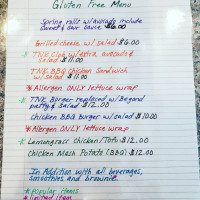 Gluten Free Menu
Spring rolls w/avocado include
sweet & sour sauce $6.00
Grilled cheese w/ salad $6.00
* TNE Club w/extra avocado &
salad $11.00
* TNE BBQ Chicken Sandwich
w/ salad $11.00
*Allergen ONLY lettuce wrap
* TNE Burger replaced w/Beyond
patty & Salad $12.00
Chicken BBQ Burger w/ salad $10.00
*Allergen ONLY lettuce wrap
* Lemongrass Chicken/Tofu $12.00
Chicken Mash Potato (BBQ) $12.00
In Addition with all beverages,
smoothies and brownie.
*Popular items
*limited item